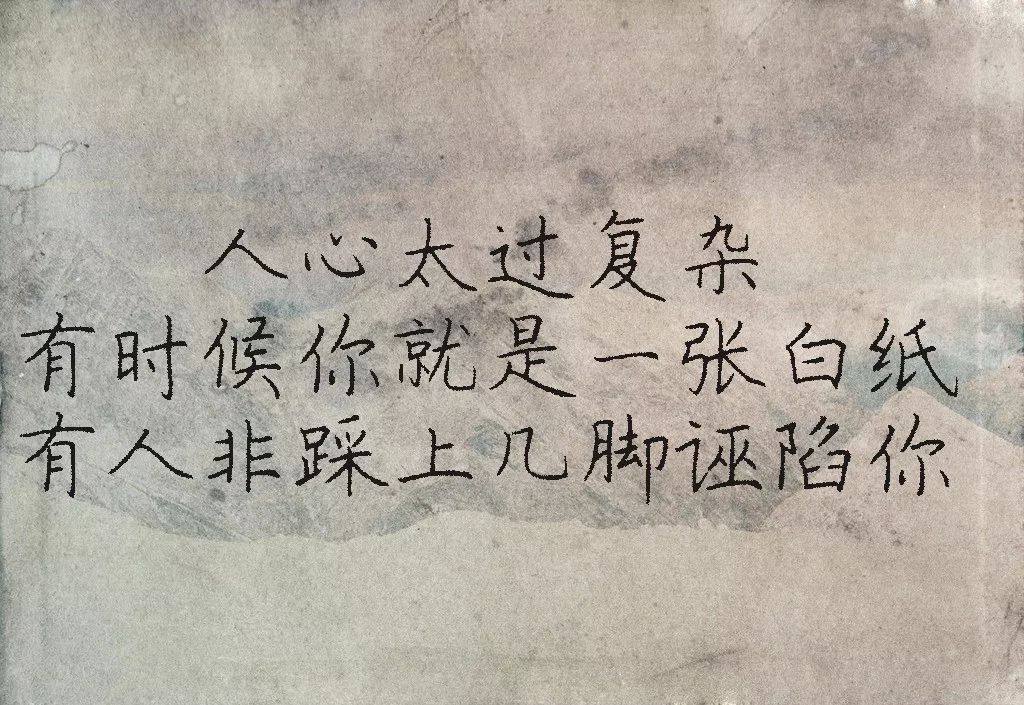 人心太过复杂
有时候你就是一张白纸
有人非踩上几脚诬陷你